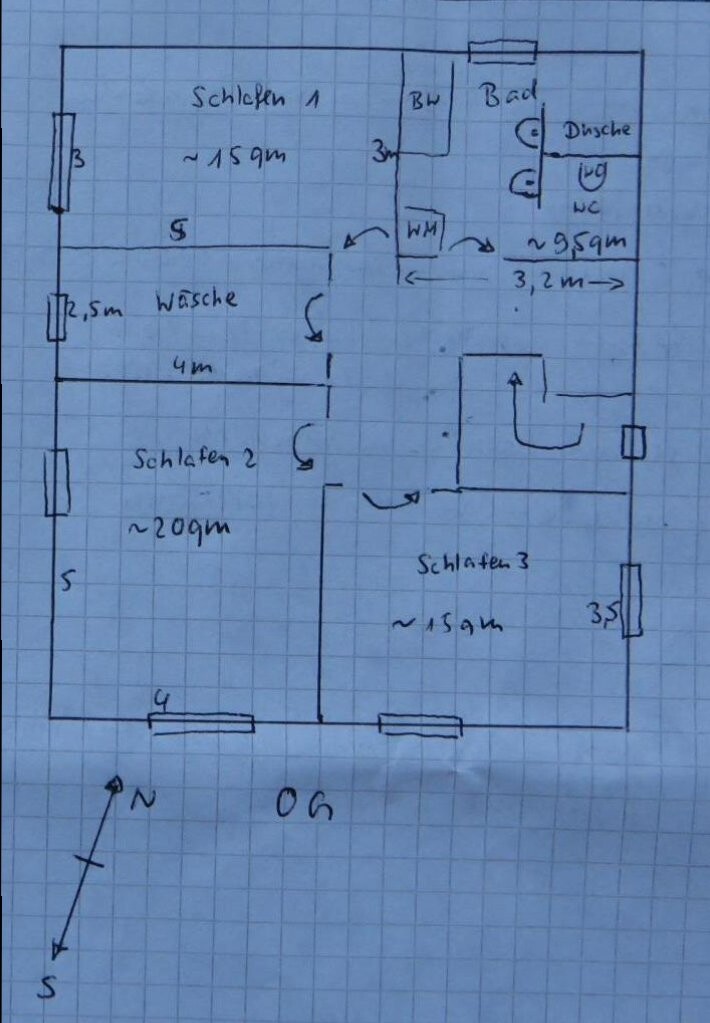 Schlafen 1
BW
Bad
Dusche
3
~ 15 qm
3m
WC
5
WM
~ 9,5qm
3,2m
2,5m
Wäsche
4m
Schlafen 2
~ 20qm
Schlafen 3
5
3,5
~ 15 qm
4
N
OG
S